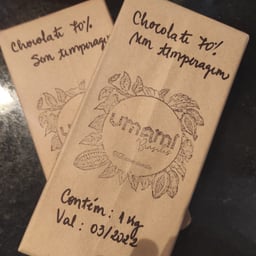 Chocolate 70%
Sem temperagem
Chocolate 70%
sem temperagem
umami
Contém: 1 Kg
Val: 03/2022